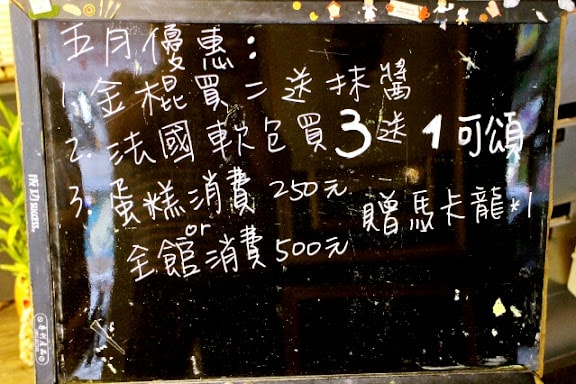 五月優惠:
1.金棍買二送抹醬
2.法國軟包買3送1可頌
3.蛋糕消費250元
or
全館消費500元
贈馬卡龍*1
成功SUCCESS.